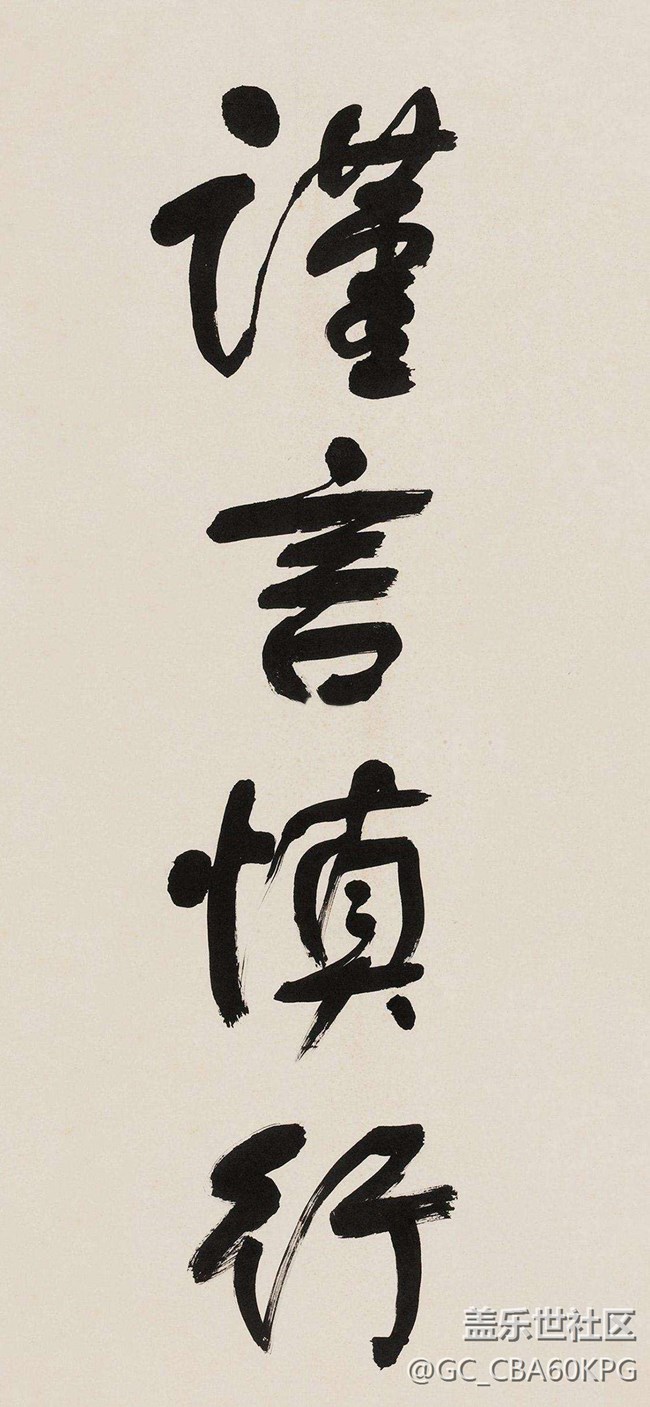 谨言慎行
盖乐世社区
@GC_CBA60KPG